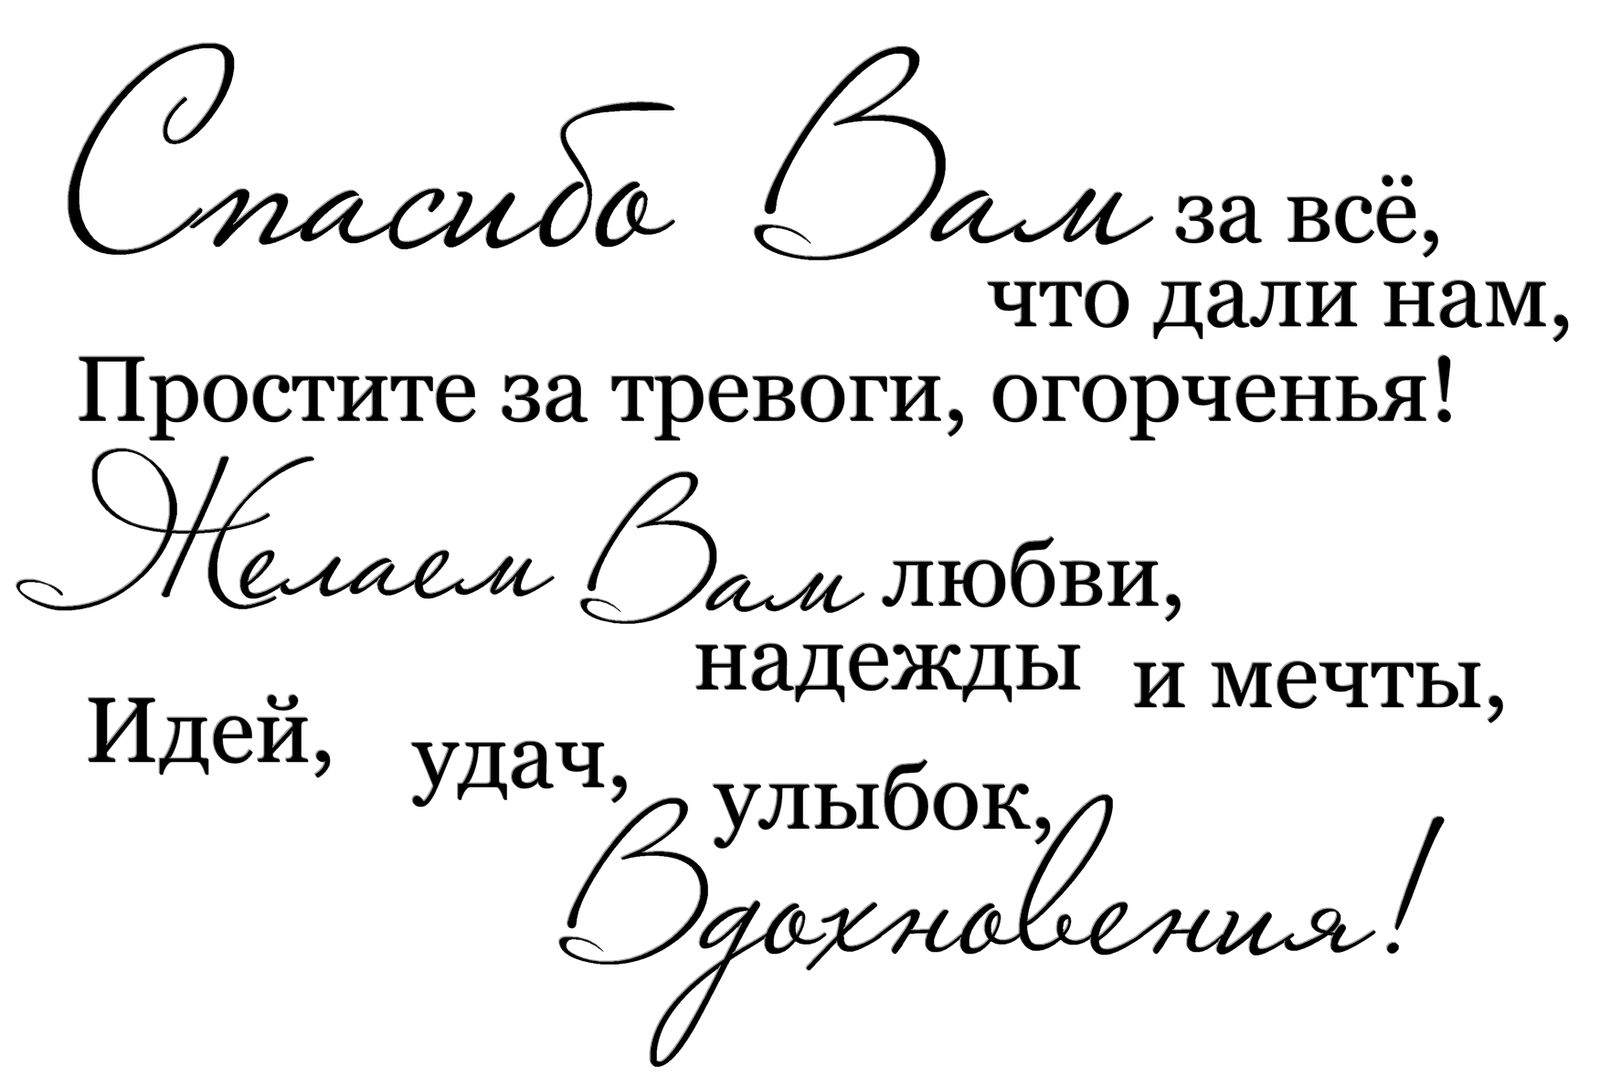 Спасибо Вам за всё,
что дали нам,
Простите за тревоги, огорченья!
Желаем Вам любви,
надежды и мечты,
Идей, удач, улыбок,
Вдохновения!